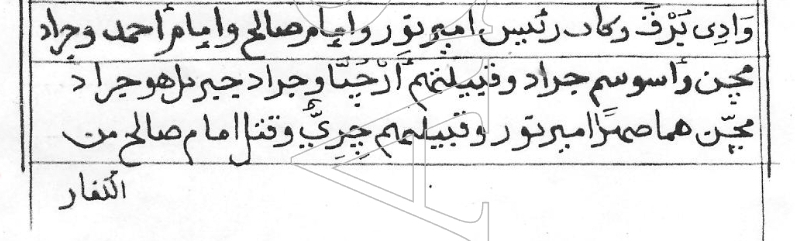 وَادِى يَرْفَ وكان رئيس امبرتور وامام صالح وامام أحمد وجراد
مجن وأسوسم جراد وقبيلتهم أَرْجُبَّا وجراد جبريل هو جراد
مجّن هما صهرا امبرتور وقبيلتهم جِرِيَّ وقتل امام صالح من
الكفار